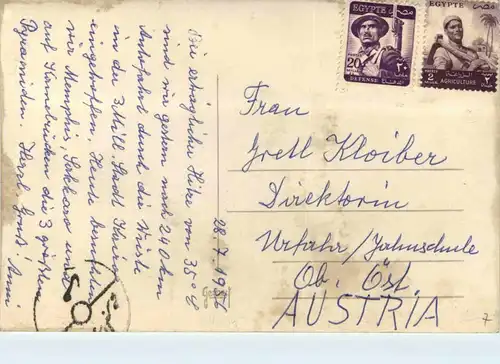 28.7.1956
Bei erträglicher Hitze von 35° C
sind wir gestern nach 240 km
Autofahrt durch die Wüste
in der 3 Mill. Stadt Kairo
eingetroffen. Heute
wir Memphis, Sakkara und
auf Kamelrücken die 3 größten
Pyramiden. Herzl. Gruß! Anni
EGYPTE مصر
20
٢٠
DEFENSE
EGYPTE مصر
2
٢
AGRICULTURE
Frau
Gretl Kloiber
Direktorin
Urfahr/Jahnschule
Ob. Öst.
AUSTRIA
7